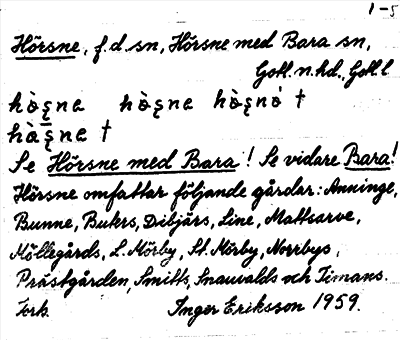 1-5
Hörsne, f.d. sn, Hörsne med Bara sn,
Gotl. n. hd., Gotl. l
hò̱ʂne hò̱ʂne hò̱ʂnó †
hà̱ʂne †
Se Hörsne med Bara! Se vidare Bara!
Hörsne omfattar följande gårdar: Anninge,
Bunne, Buters, Dibjärs, Line, Mattsarve,
Möllegårds, L. Mörby, St. Mörby, Norrbys,
Prästgården, Smitts, Snauvalds och Timans.
Inger Eriksson 1959.